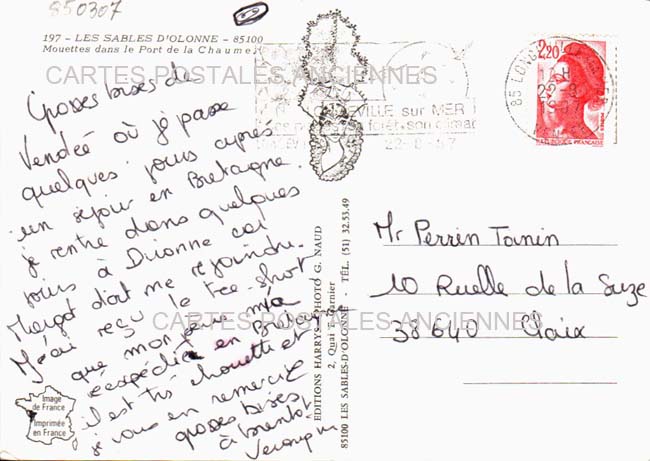 850307
197 - LES SABLES D'OLONNE - 85100
Mouettes dans le Port de la Chaume
CARTES POSTALES ANCIENNES
Grosses bises de
Vendée où je passe
quelques jours après
un séjour en Bretagne.
je rentre dans quelques
jours à car
Margot doit me rejoindre.
J'ai reçu le tee-shirt
que mon père m'a
réexpédié en Bretagne
il est très chouette et
je vous en remercie
grosses bises
à bientôt
Image
de France
Imprimée
en France
EDITIONS HARRYS - PHOTO G. NAUD
2, Quai Garnier
85100 LES SABLES-D'OLONNE - TÉL. (51) 32.53.49
VILLE sur MER
forêt-son climat
2,20
RÉPUBLIQUE FRANÇAISE
Mr Perrin
10 Ruelle de la Suze
38640 Claix
CARTES POSTALES ANCIENNES